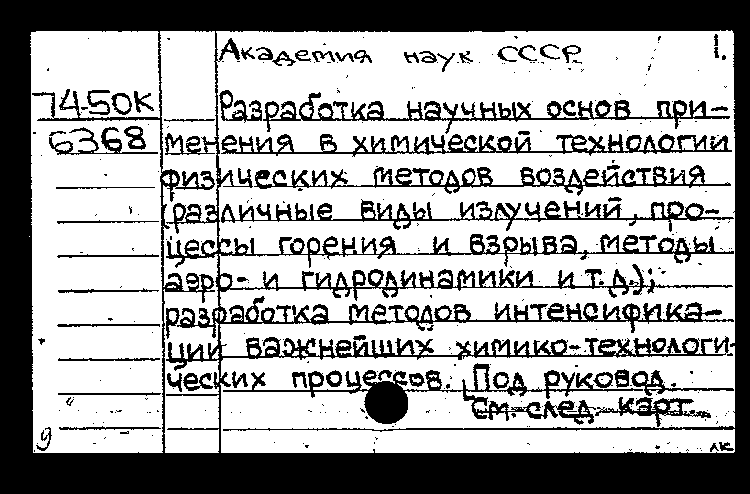 Академия наук СССР 1.
74-50К Разработка научных основ при-
6368 менения в химической технологии
физических методов воздействия
(различные виды излучений, про-
цессы горения и взрыва, методы
аэро- и гидродинамики и т.д.);
разработка методов интенсифика-
ции важнейших химико-технологи-
ческих процессов. Под руковод.
См. след. карт.
9 лк